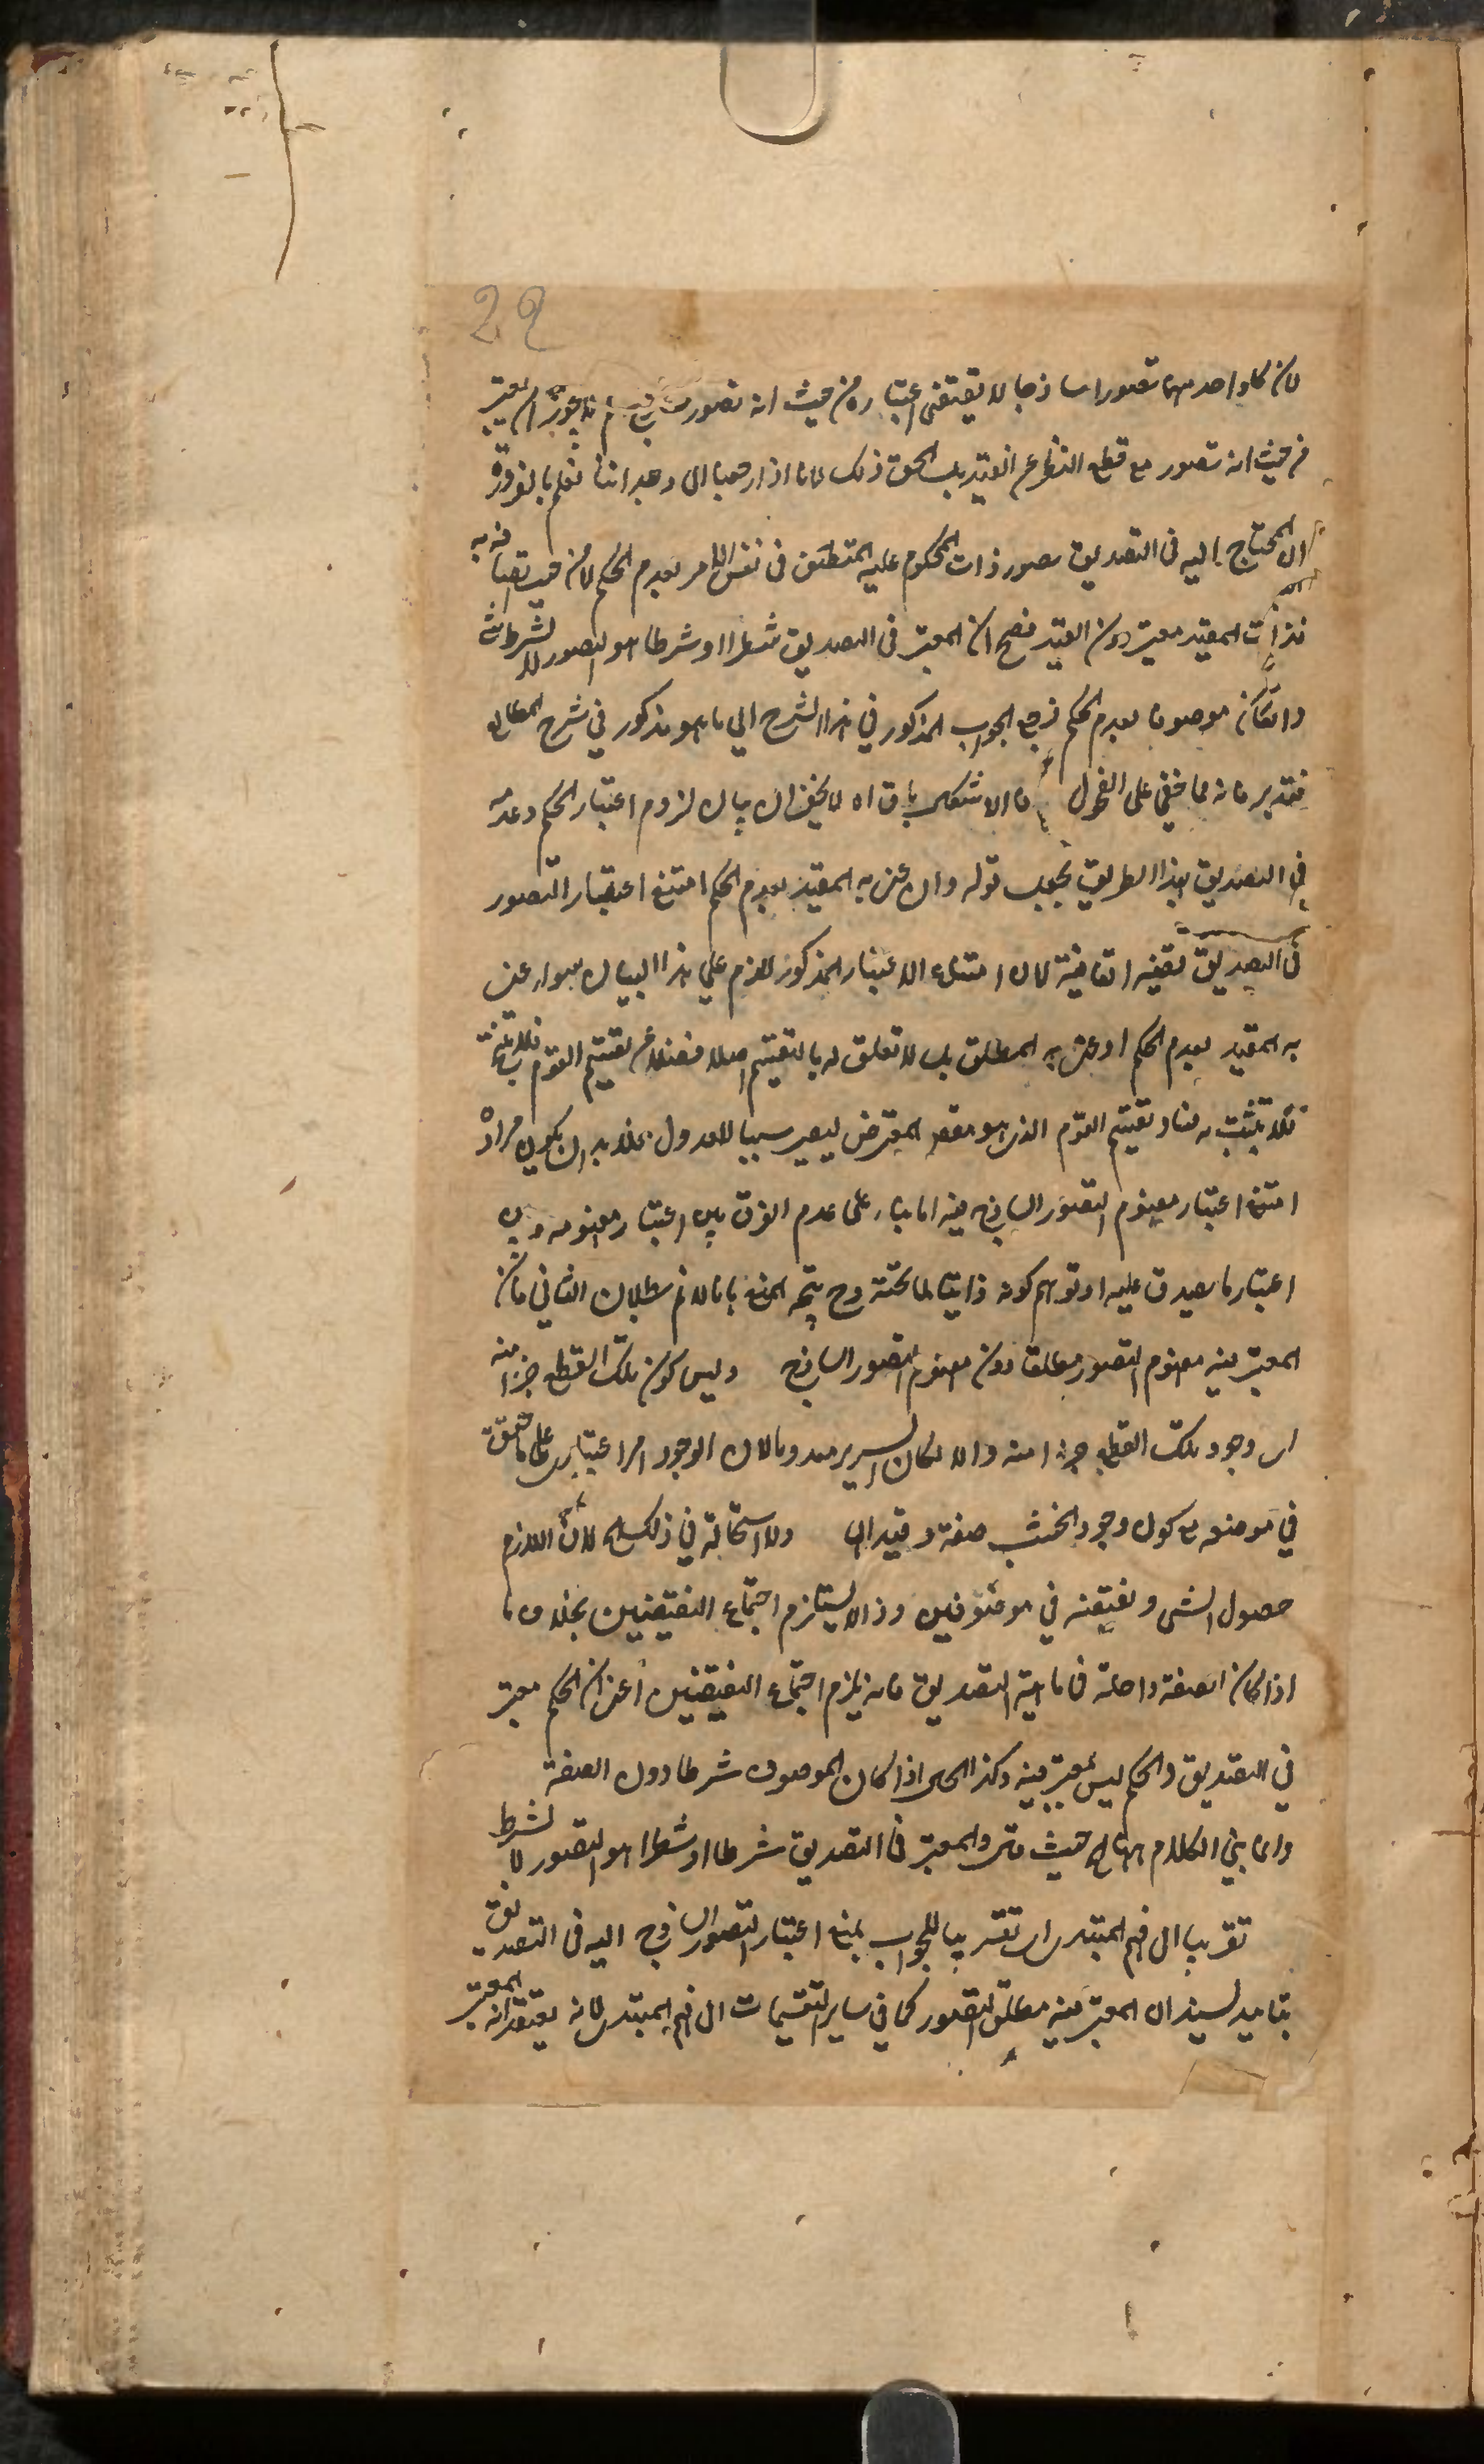 29
لان كلا واحد منهما تصورا ساذجا لا يقتضي اعتباره من حيث انه تصور ساذج يجوز ان يعتبر
من حيث انه تصور مع قطع النظر عن القيد بل الحق ذلك لانا اذا رجعنا الى وجداننا نعلم بالضرورة
ان المحتاج اليه في التصديق تصور ذات المحكوم عليه المتصف في نفس الامر بعدم الحكم لا من حيث اتصافه به
فذات المقيد معتبر دون القيد فصح ان المعتبر في التصديق شطرا او شرطا هو التصور لا بشرط شئ
وان كان موصوفا بعدم الحكم فرجع الجواب المذكور في هذا الشرح الي ما هو مذكور في شرح المطالع
فتدبر فانه مما خفي على الفحول فالاشكال باق اه لا يخفى ان بيان لزوم اعتبار الحكم وعدمه
في التصديق بهذا الطريق يجعل قوله وان عنى به المقيد بعدم الحكم امتنع اعتبار التصور
في التصديق قضية اتفاقية لان امتناع الاعتبار المذكور لازم علي هذا البيان سواء عنى
به المقيد بعدم الحكم او عنى به المطلق بل لا تعلق له بالتقسيم اصلا فضلا عن تقسيم القوم
فلا يثبت به فساد تقسيم القوم الذي هو مقصد المعترض ليصير سببا للعدول فلا بد ان يكون مراده
امتنع اعتبار مفهوم التصور الساذج فيه اما بناء على عدم الفرق بين اعتبار مفهومه وبين
اعتبار ما يصدق عليه او توهم كونه ذاتيا لما تحته وح يتجه المنع بانا لا نم بطلان الثاني فان
المعتبر فيه مفهوم التصور مطلقا دون مفهوم التصور الساذج وليس كون تلك القطع جزا منه
اى وجود تلك القطع جزءا منه والا لكان السرير معدوما لان الوجود امر اعتبارى على ما حقق
في موضعه مع كون وجود الخشب صفة وقيدا لها ولا استحالة في ذلك اه لان اللازم
حصول الشئ ونقيضه في موضوفين وذا لا يستلزم اجتماع النقيضين بخلاف ما
اذا كان الصفة داخلة في ماهية التصديق فانه يلزم اجتماع النقيضين اعنى ان الحكم معتبر
في التصديق والحكم ليس بمعتبر فيه وكذا الحال اذا كان الموصوف شرطا دون الصفة
وانما بني الكلام ههنا اه حيث قال والمعتبر في التصديق شرطا او شطرا هو التصور لا بشرط
تقريبا الى فهم المبتدى اى تقريبا للجواب بمنع اعتبار التصور الساذج اليه في التصديق
بتاييد لسند ان المعتبر فيه مطلق التصور كما في ساير التقسيمات الى فهم المبتدى لانه يعتقد انه المعتبر